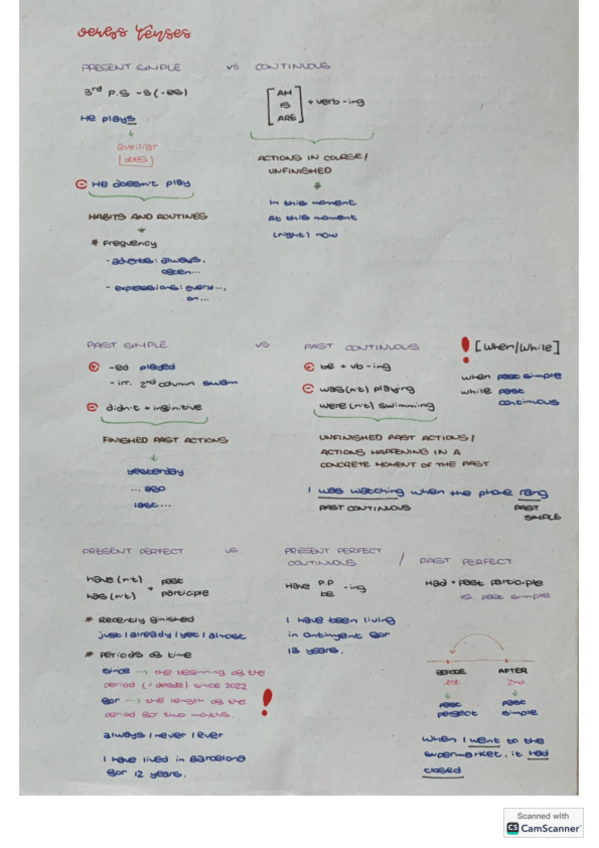 verbs Tenses
PRESENT SIMPLE vs CONTINUOUS
3rd P.S -s (-es)
He plays
auxiliar
(does)
⊖ He doesn't play
HABITS AND ROUTINES
* Frequency
- adverbs: always,
often...
- expressions: every...,
on...
[AM
IS
ARE] + verb -ing
ACTIONS IN COURSE /
UNFINISHED
*
In this moment
At this moment
(right) now
PAST SIMPLE vs PAST CONTINUOUS
⊕ -ed played
- irr. 2nd column swam
⊖ didn't + infinitive
FINISHED PAST ACTIONS
yesterday
... ago
last...
⊕ be + vb -ing
⊖ was(n't) playing
were(n't) swimming
UNFINISHED PAST ACTIONS /
ACTIONS HAPPENING IN A
CONCRETE MOMENT OF THE PAST
I was watching when the phone rang
PAST CONTINUOUS PAST
SIMPLE
! [when/while]
when past simple
while past
continuous
PRESENT PERFECT vs. PRESENT PERFECT
CONTINUOUS / PAST PERFECT
have (n't) + past
has (n't) participle
* Recently finished
just / already / yet / almost
* Periods of time
since → the beginning of the
period (= desde) since 2022
for → the length of the
period for two months.
!
always / never / ever
I have lived in Barcelona
for 12 years.
HAVE P.P -ing
be
I have been living
in Ontinyent for
13 years.
Had + past participle
vs. past simple
BEFORE AFTER
1st 2nd
past past
perfect simple
When I went to the
supermarket, it had
closed
Scanned with
CS CamScanner